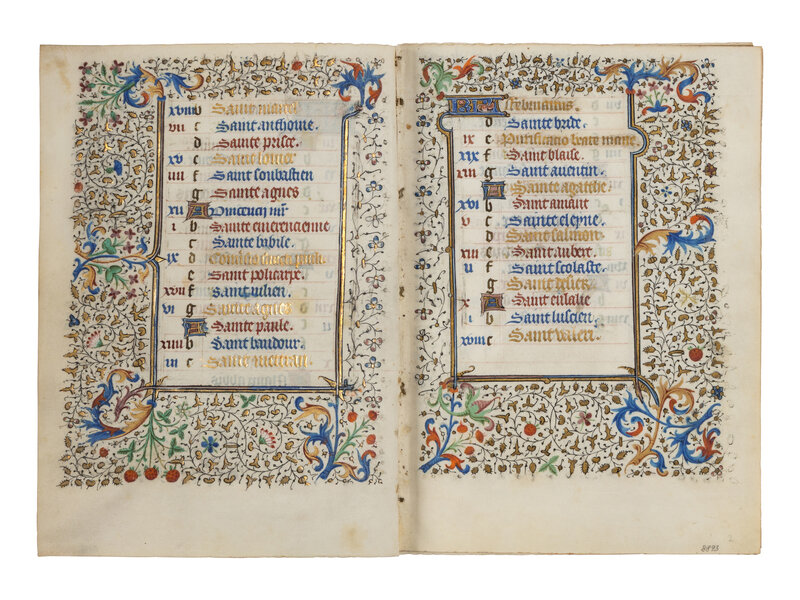 xviii b Sainte marcel
vii c Saint anthoine.
d Sainte prisce.
xv e
iiii f Saint soubastien
g Sainte agnes
xii A Vincencii mr
i b Sainte emerencienne
c Saint babile.
ix d Conuers saint paul.
e Saint policarpe.
xvii f Saint iulien.
vi g Sainte agnes
A Sainte paule.
xiiii b Saint baudour.
iii c Sainte
KL februarius.
d Sainte bride.
ix e Purificatio beate marie.
xix f Saint blaise.
viii g Saint auentin.
A Sainte agathe.
xvi b Saint amant
v c Sainte eleyne.
d Saint salmon
xiii e Saint aubert.
ii f Saint scolaste.
g Saint
x A Saint eulalie
b Saint luscien.
xviii c Saint valeri.
8893
2